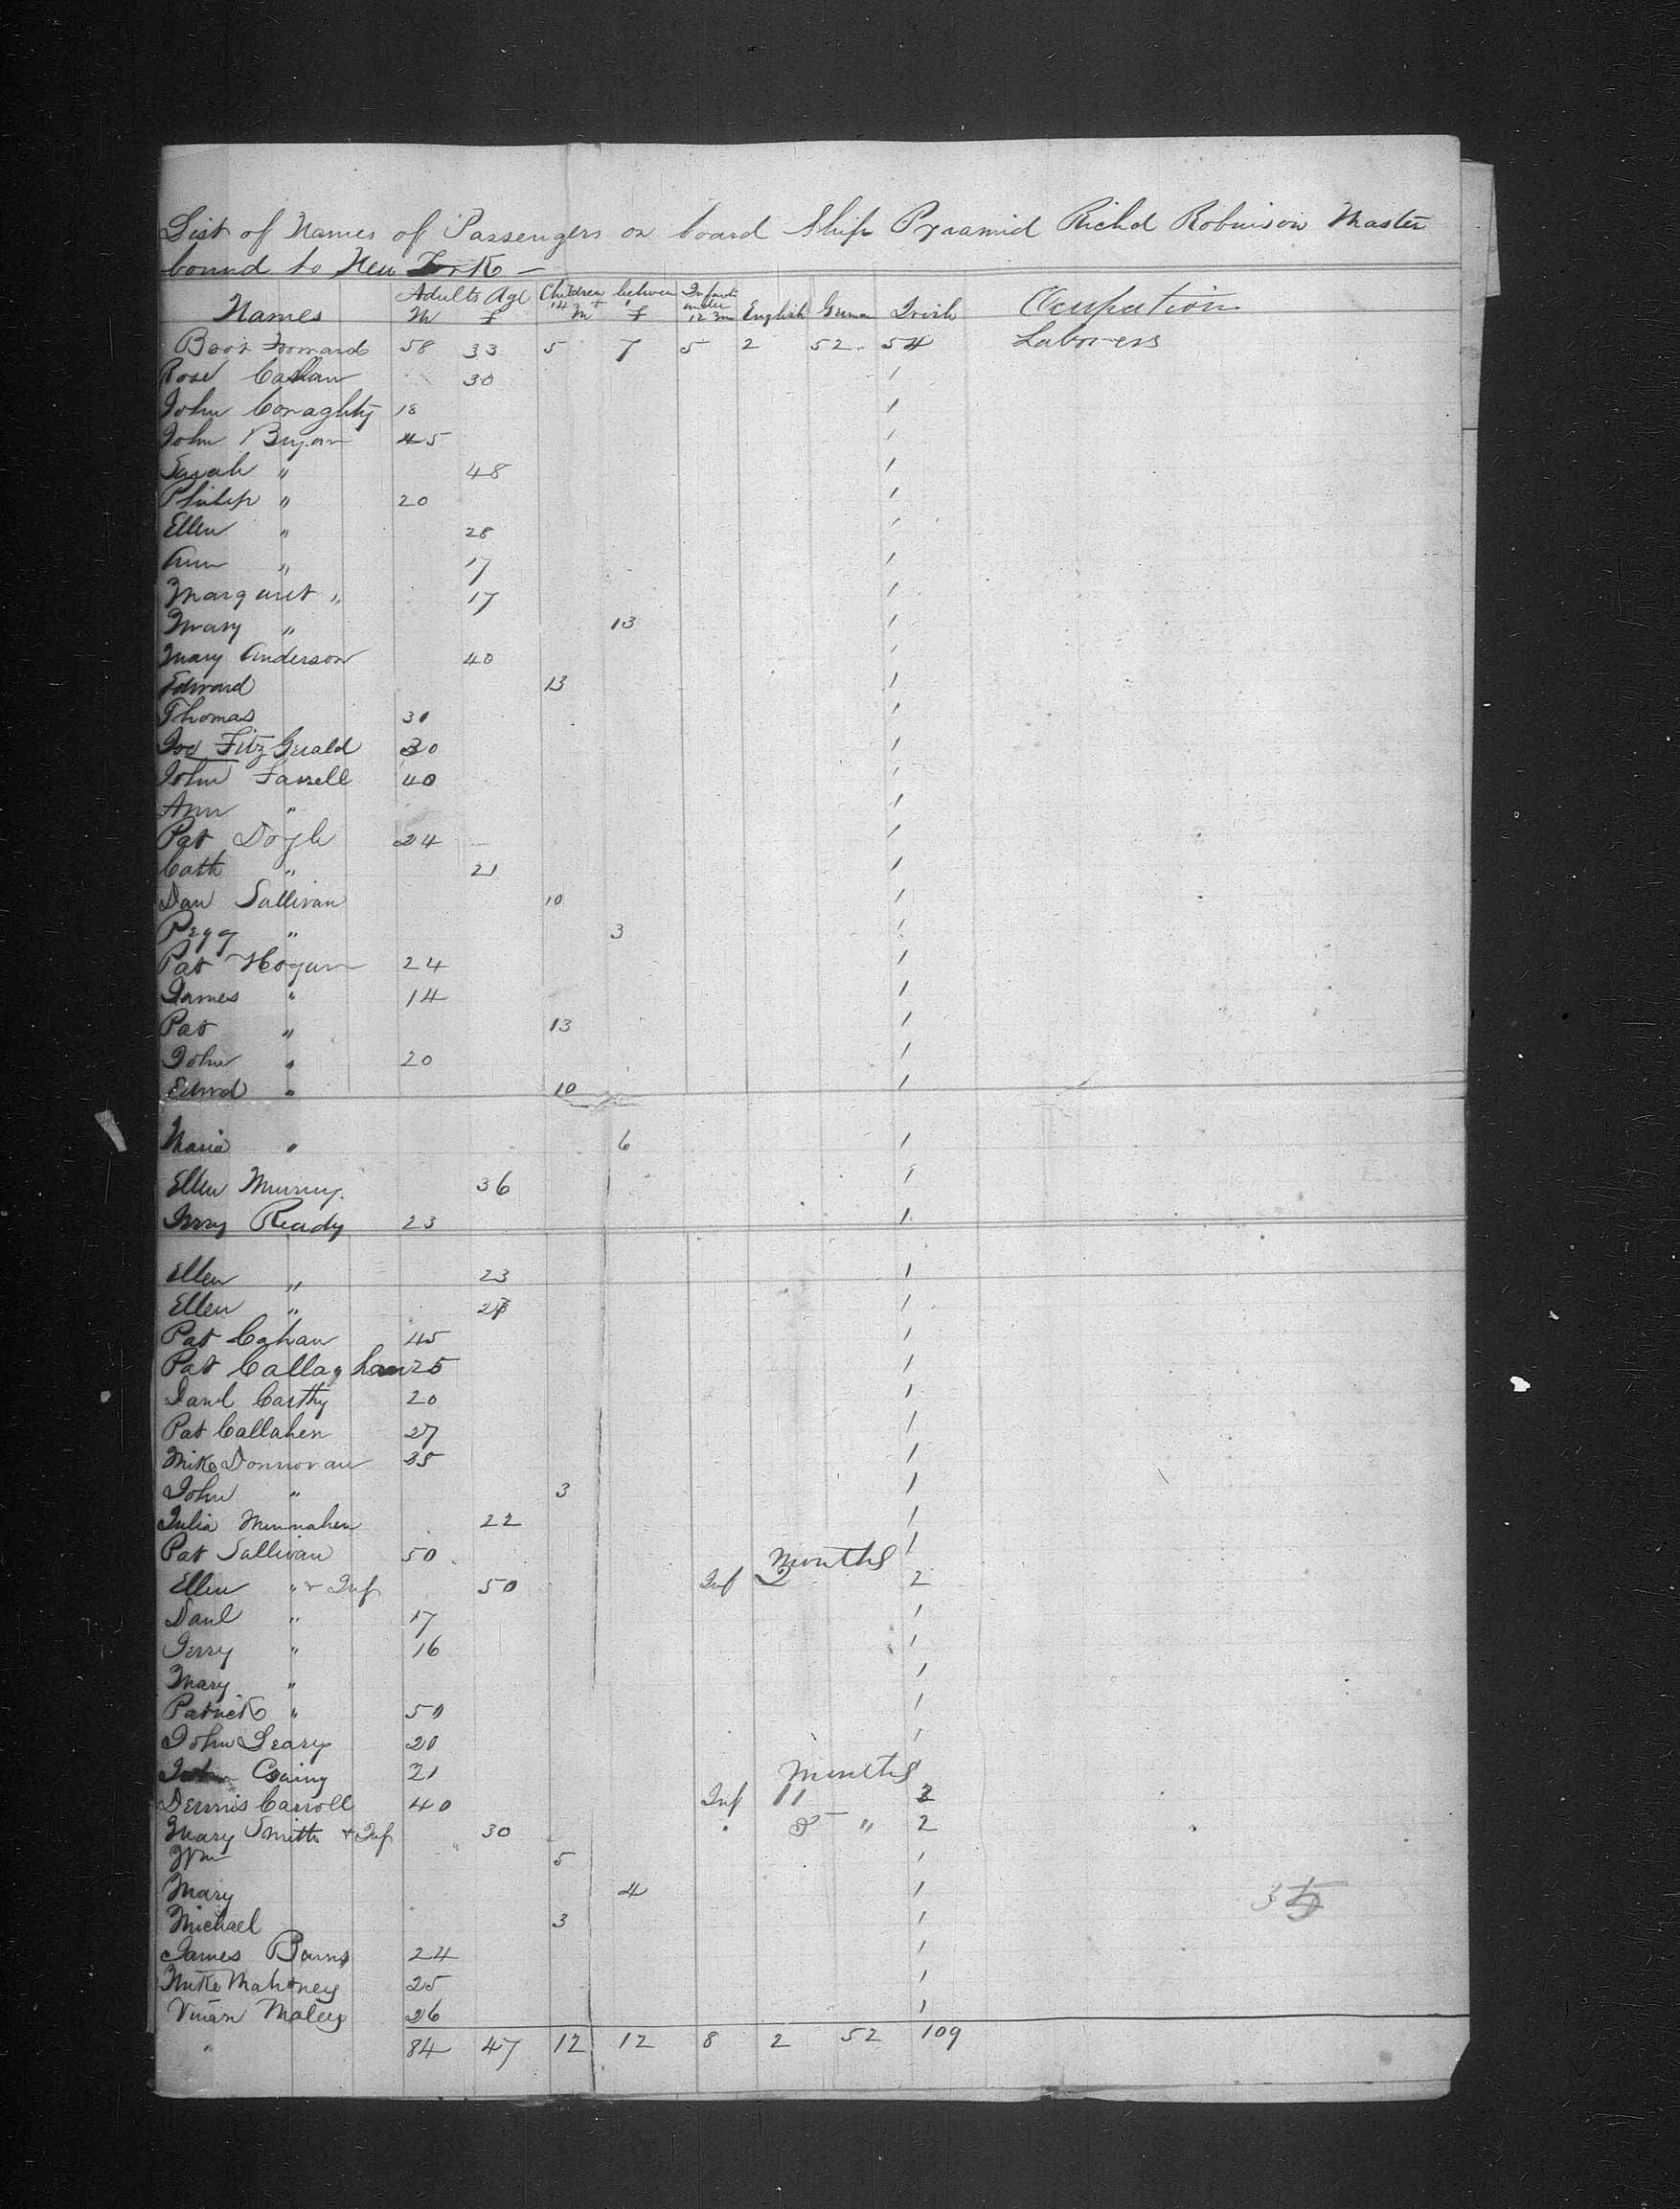 List of Names of Passengers on board Ship Pyramid Richd Robinson Master
bound to New York —
Names Adults Age M f Children between 14 + 1 M f Infants under 12 3m English German Irish Occupation
Forward 58 33 5 7 5 2 52 54 Laborers
Rose 30 1
John Conaghty 18 1
John Bryan 45 1
Sarah " 48 1
Philip " 20 1
Ellen " 28 1
Ann " 17 1
Margaret " 17 1
Mary " 13 1
Mary Anderson 40 1
Edward 13 1
Thomas 30 1
Jos FitzGerald 30 1
John Farrell 40 1
Ann " 1
Pat Doyle 24 1
Cath " 21 1
Dan Sullivan 10 1
Pegg " 3 1
Pat Hogan 24 1
James " 14 1
Pat " 13 1
John " 20 1
Edwd " 10 1
Maria " 6 1
Ellen Murray 36 1
Jerry Ready 23 1
Ellen " 23 1
Ellen " 1
Pat Cghan 45 1
Pat Callaghan 25 1
Danl Carthy 20 1
Pat Callahen 27 1
Mike Donnovan 35 1
John " 3 1
Julia Minnahen 22 1
Pat Sullivan 50 1
months
Ellen " + Inf 50 Inf 2 2
Danl " 17 1
Jerry " 16 1
Mary " 1
Patrick " 50 1
John Leary 20 1
21
months
Dennis Carroll 40 Inf 11 2
Mary Smith + Inf 30 " 8 " 2
Wm 5 1
Mary 4 1
Michael 3 1
35
James Barns 24 1
Mike Mahoney 25 1
Maley 26 1
" 84 47 12 12 8 2 52 109